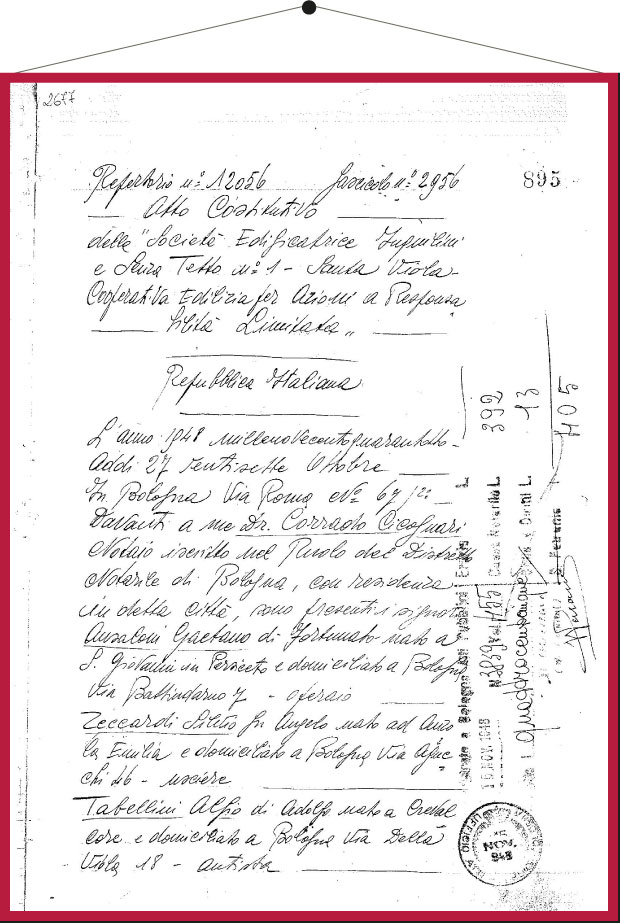 2677
Repertorio n° 12056 fascicolo n° 2956 895
Atto Costitutivo
della "Società Edificatrice Inquilini
e Senza Tetto n° 1 - Santa Viola
Cooperativa Edilizia per Azioni a Responsa
bilità Limitata"
Repubblica Italiana
L'anno 1948 millenovecentoquarantotto -
Addì 27 ventisette Ottobre
In Bologna Via Roma N° 67
Davanti a me Dr. Corrado Cicognari
Notaio iscritto nel Ruolo del Distretto
Notarile di Bologna, con residenza
in detta città, sono presenti i signori
Ansaloni Gaetano di Fortunato nato a
S. Giovanni in Persiceto e domiciliato a Bologna
Via Battindarno 7 - operaio
Zeccardi Silvio fu Angelo nato ad Anzo
la Emilia e domiciliato a Bologna Via Aguc
chi 46 - usciere
Tabellini Alfio di Adolfo nato a Creval
core e domiciliato a Bologna Via Della
Viola 18 - autista
Atti Pubblici
15 NOV. 1948 N° 3839 455 Cassa Notarile L. 392
quattrocentocinque L. 13
405
UFFICIO ATTI
15
NOV.
948